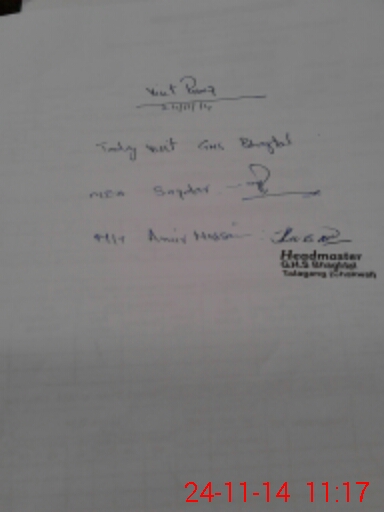 Visit Proof
24/11/14
Today visit GHS Bhagtal
MEA Sayder
HM Amir Hussain
Headmaster
G.H.S Bhagtal
Talagang (Chakwal)
24-11-14 11:17